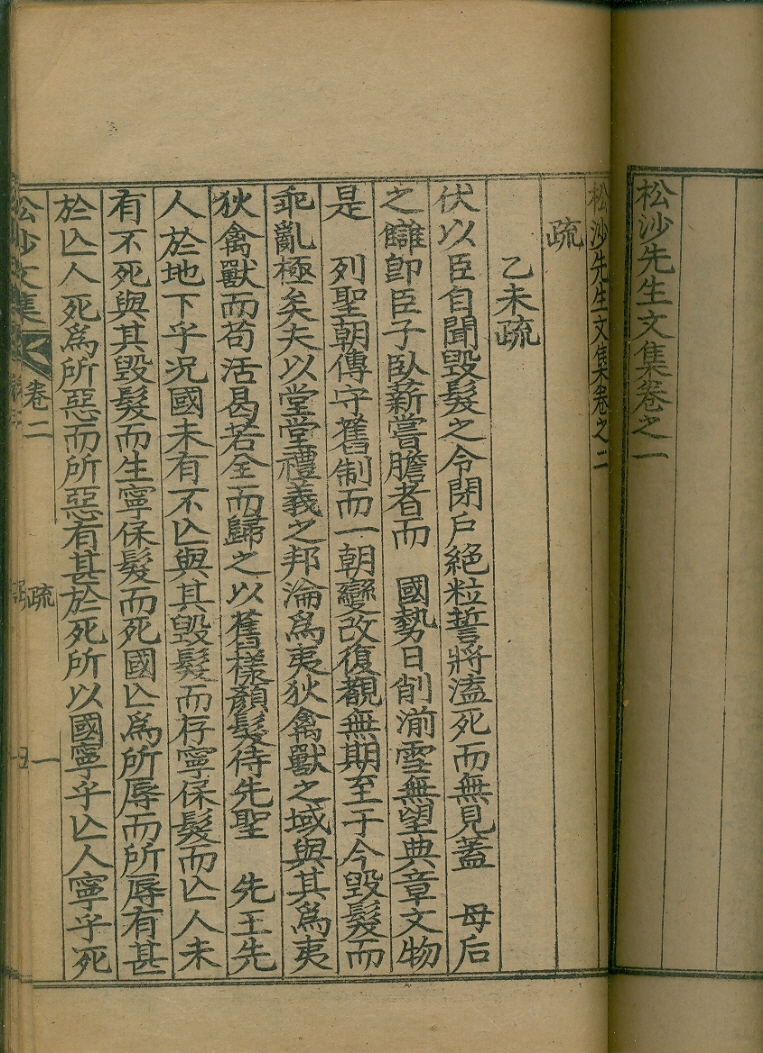 松沙先生文集卷之一
松沙先生文集卷之二
疏
乙未疏
伏以臣自聞毁髮之令閉戶絶粒誓將溘死而無見蓋　母后
之讎卽臣子臥薪嘗膽者而　國勢日削湔雪無望典章文物
是　列聖朝傳守舊制而一朝變改復覩無期至于今毁髮而
乖亂極矣夫以堂堂禮義之邦淪爲夷狄禽獸之域與其爲夷
狄禽獸而苟活曷若全而歸之以舊樣顏髮待先聖　先王先
人於地下乎况國未有不亾與其毁髮而存寧保髮而亾人未
有不死與其毁髮而生寧保髮而死國亾爲所辱而所辱有甚
於亾人死爲所惡而所惡有甚於死所以國寧乎亾人寧乎死
松沙文集
卷二
疏
一